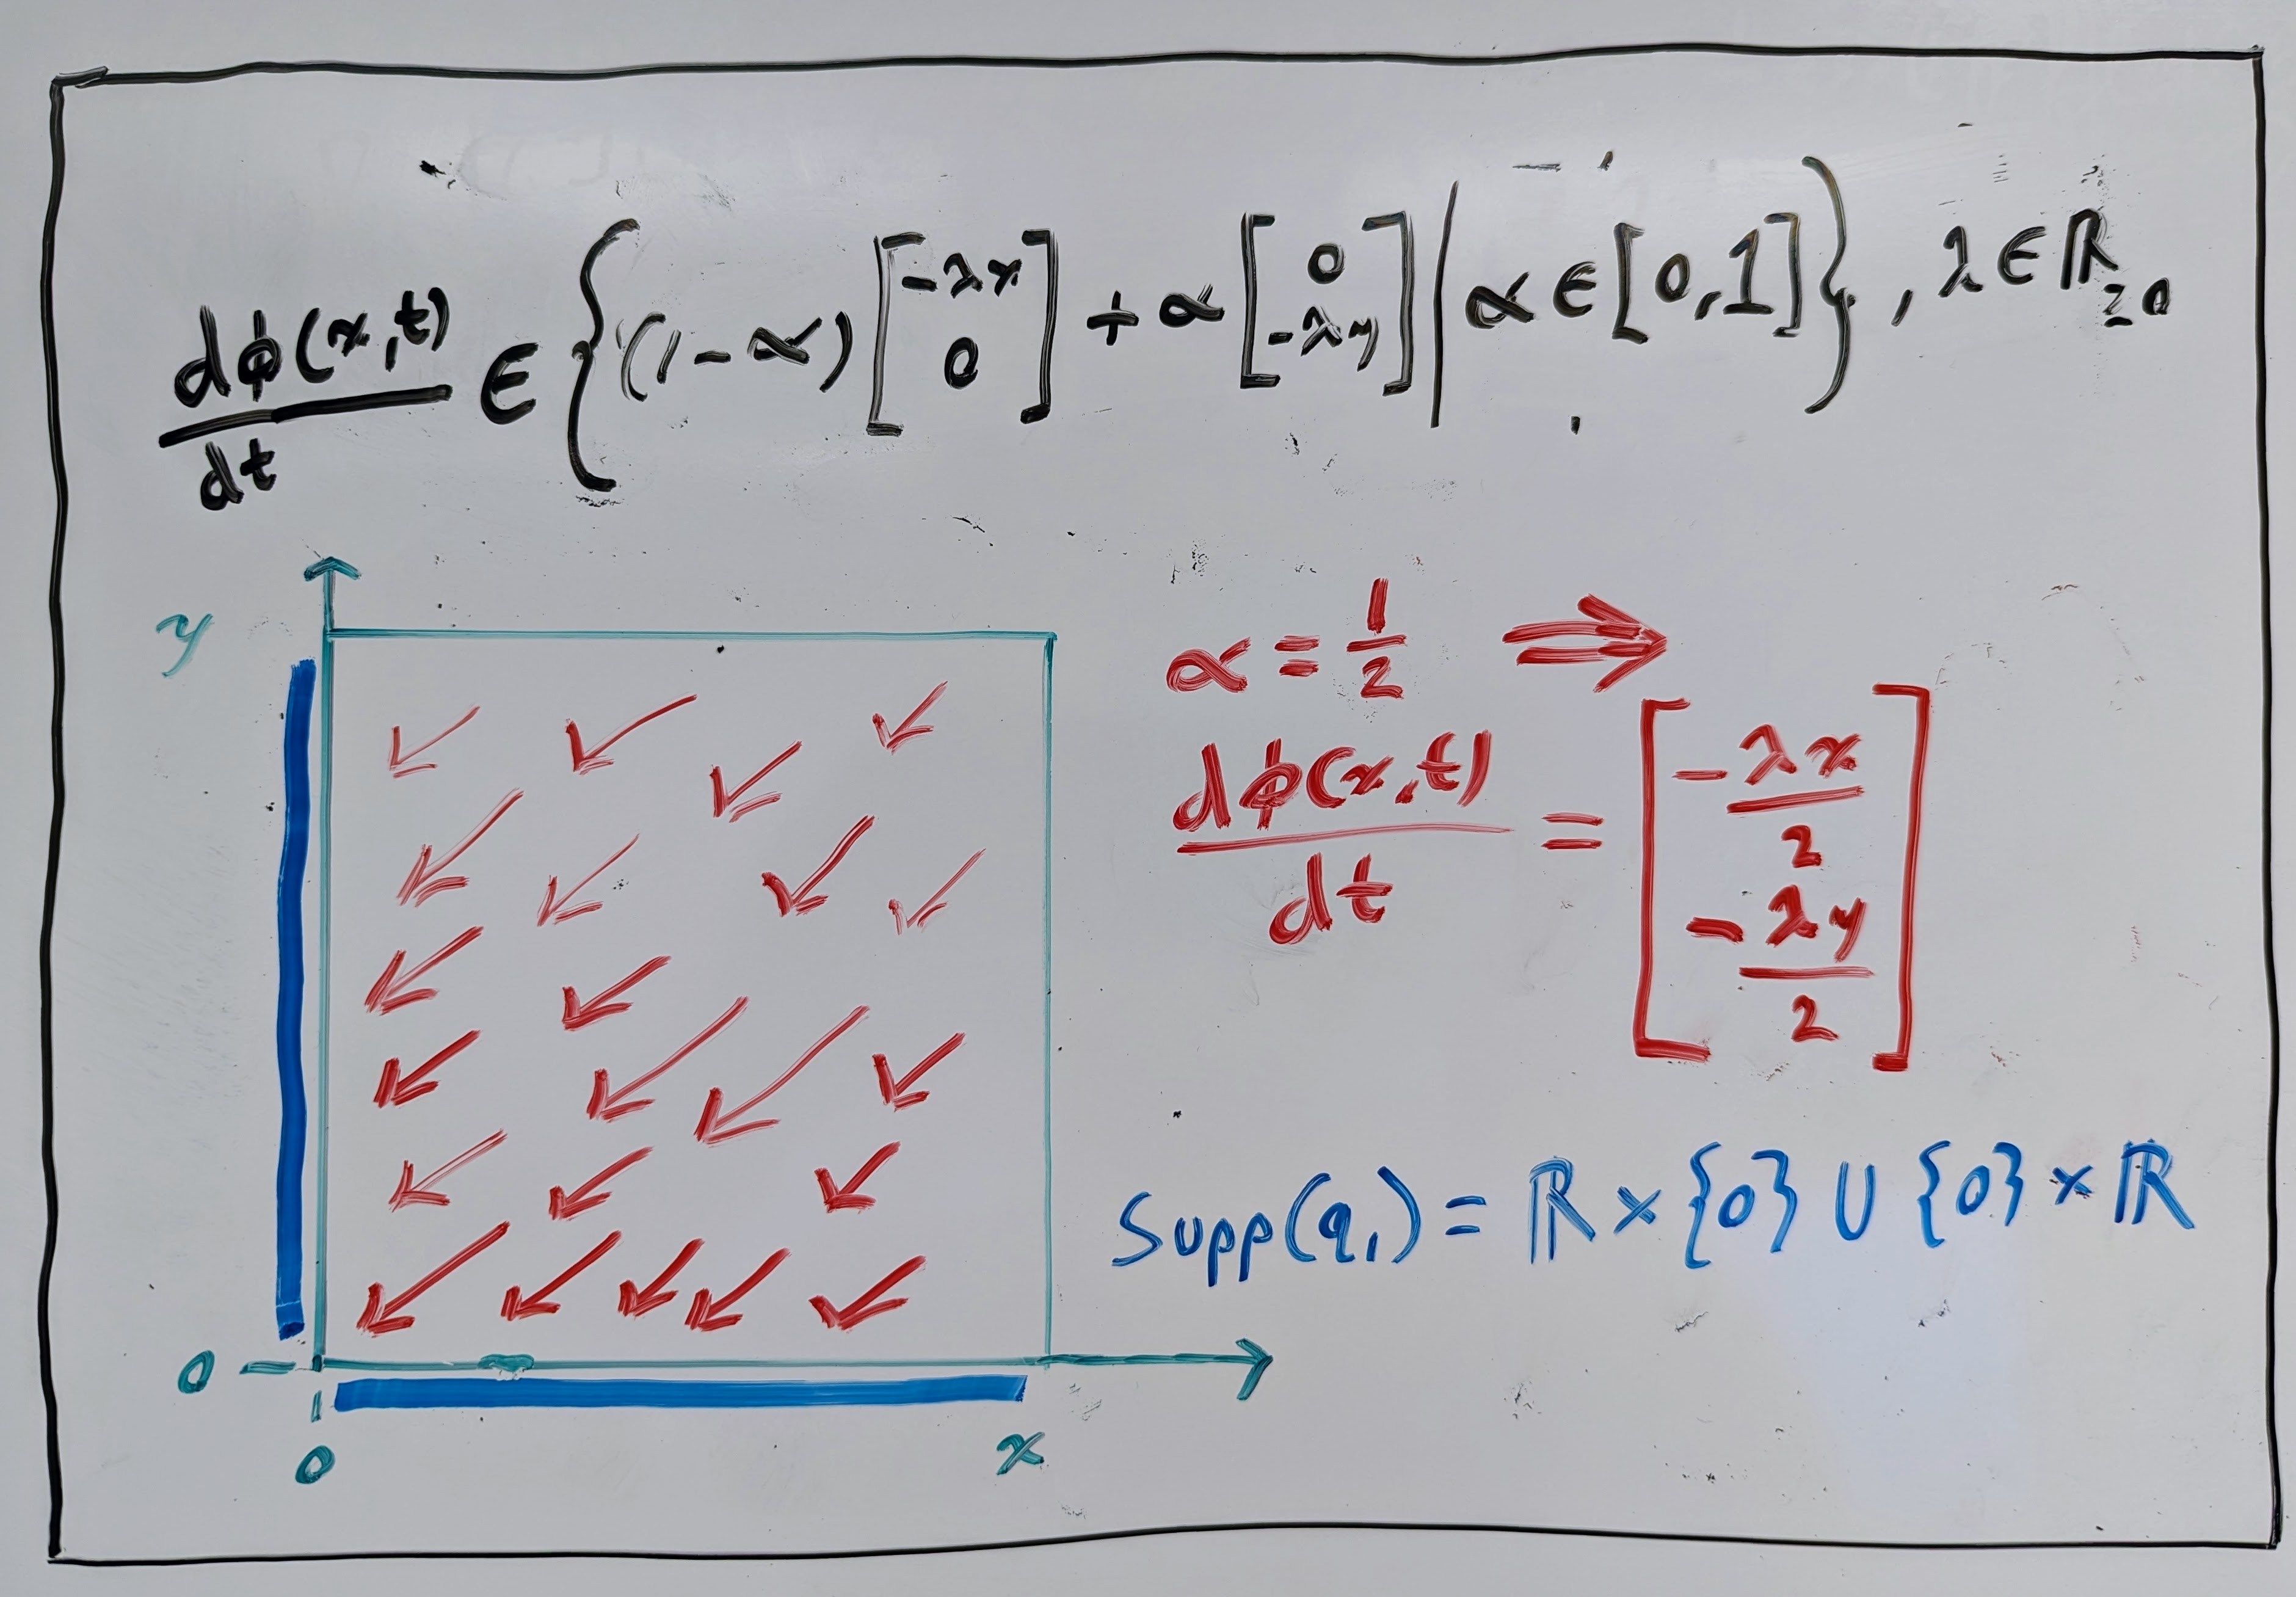 dϕ(x,t)/dt ∈ {(1-α)[-λx 0] + α[0 -λy] | α ∈ [0,1]}, λ ∈ ℝ≥0
y
α = 1/2 ⇒
dϕ(x,t)/dt = [-λx/2 -λy/2]
Supp(q₁) = ℝ × {0} ∪ {0} × ℝ
0
0
x